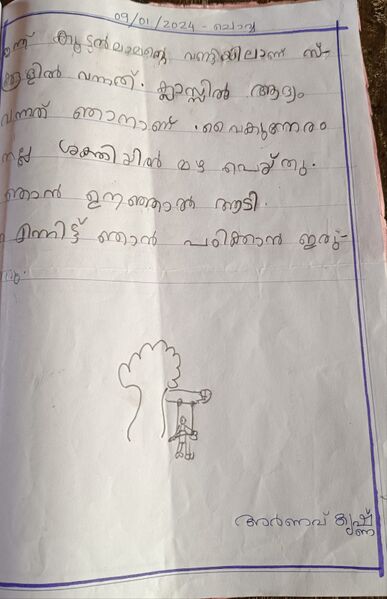 09/01/2024 - ചൊവ്വ
ഇന്ന് കുട്ടൻമാമന്റെ വണ്ടിയിലാണ് സ്-
കൂളിൽ വന്നത്. ക്ലാസ്സിൽ ആദ്യം
വന്നത് ഞാനാണ്. വൈകുന്നേരം
നല്ല ശക്തിയിൽ മഴ പെയ്തു.
ഞാൻ ഊഞ്ഞാൽ ആടി.
എന്നിട്ട് ഞാൻ പഠിക്കാൻ ഇരു-
ന്നു.
അർണവ് കൃഷ്ണ